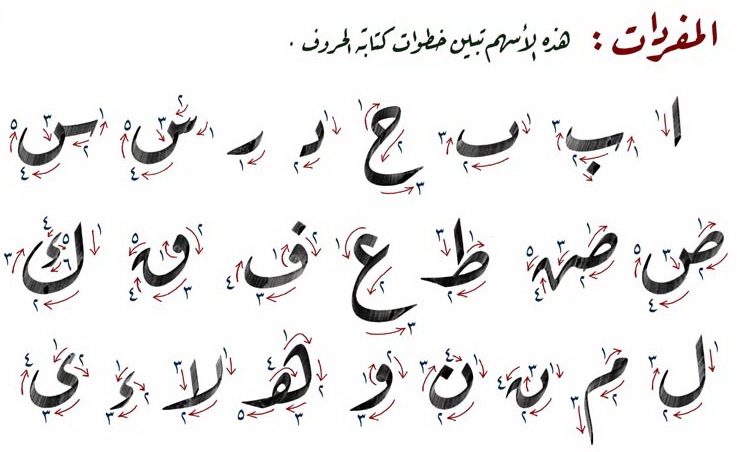 المفردات : هذه الأسهم تبين خطوات كتابة الحروف .
ا ب ٮ ح د ر س س
ص صہ ط ع ف ق ك
ل م ں ن و ه لا ء ى